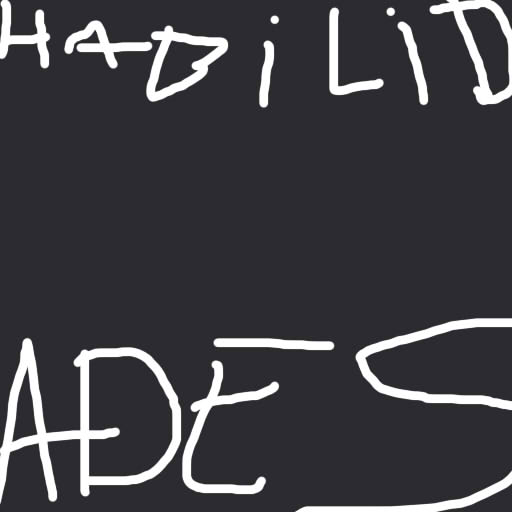 HABiLiD
ADES